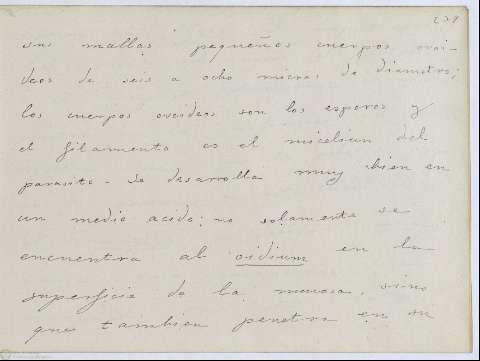 239
sus mallas pequeños cuerpos ovoi-
deos de seis a ocho micras de diametro;
los cuerpos ovoideos son los esporos y
el filamento es el micelium del
parasito - se desarrolla muy bien en
un medio acido: no solamente se
encuentra al oidium en la
superficie de la mucosa, sino
que tambien penetra en su